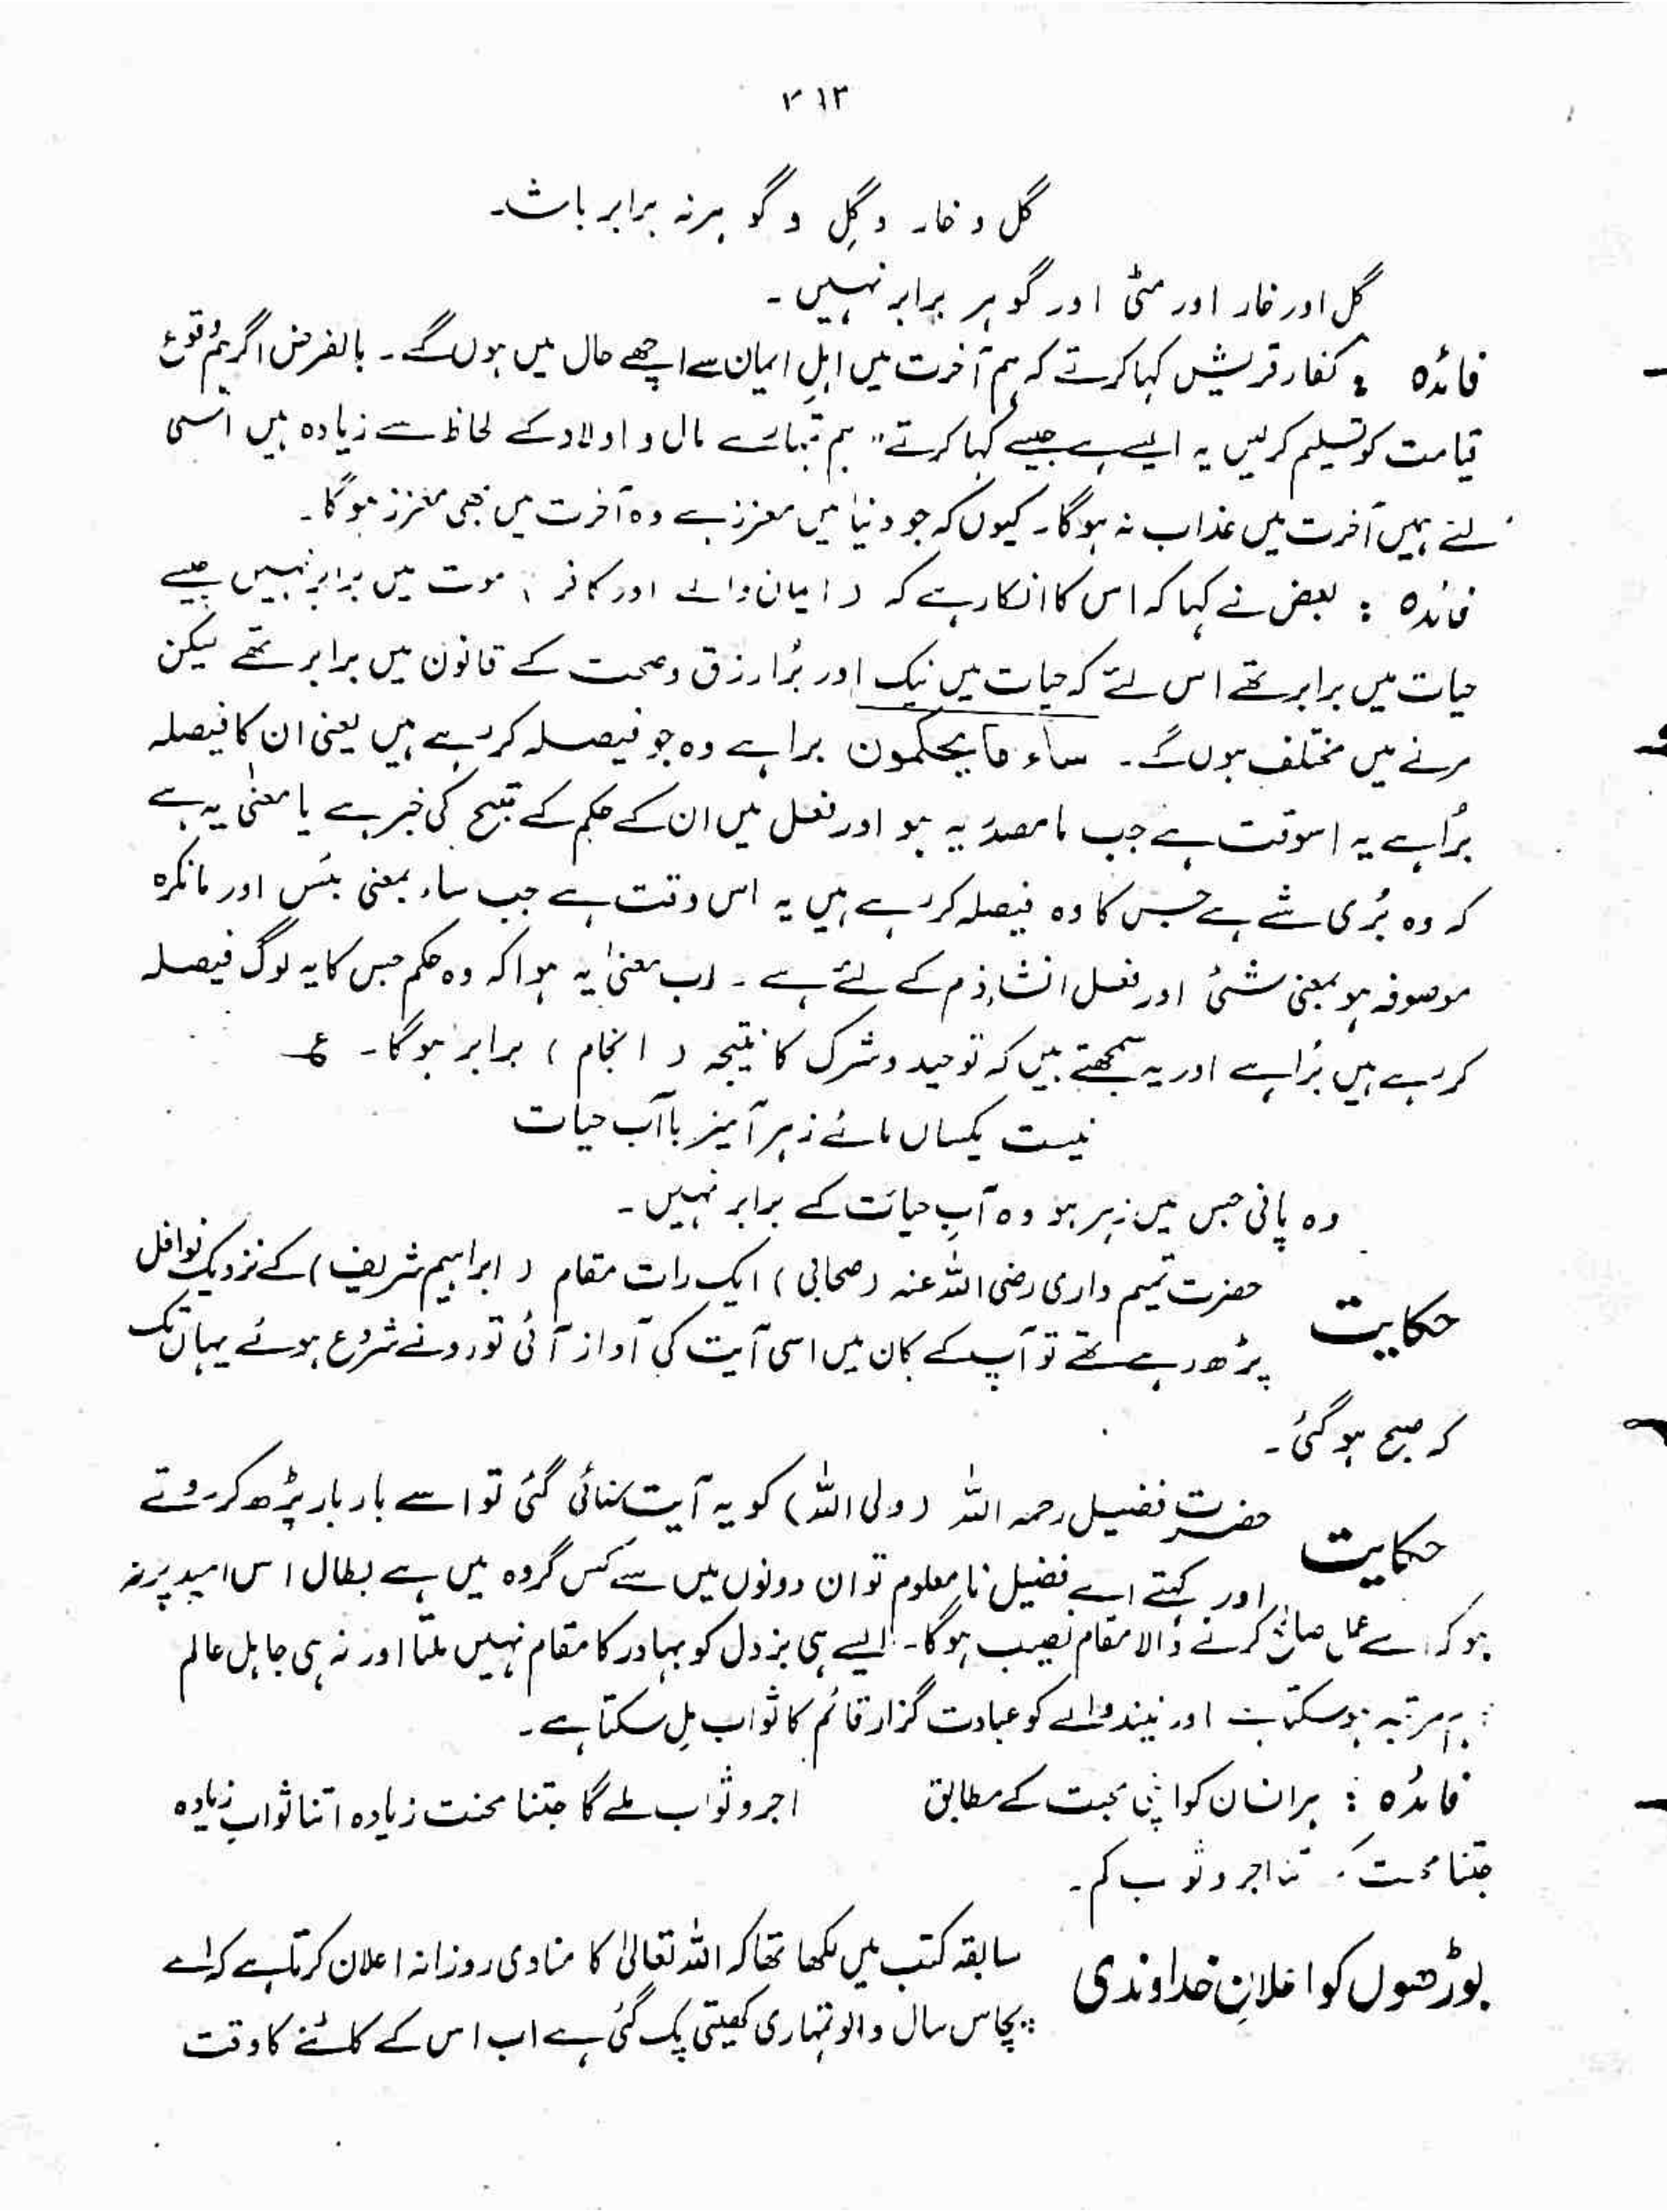 ۲۱۳
گل و خار و گِل و گوہر نہ برابر باشد۔
گل اور خار اور مٹی اور گوہر برابر نہیں ۔
فائدہ : کفار قریش کہا کرتے کہ ہم آخرت میں اہلِ ایمان سے اچھے حال میں ہوں گے ۔ بالفرض اگر ہم وقوع
قیامت کو تسلیم کر لیں یہ ایسے ہے جیسے کہا کرتے " ہم تمہارے مال و اولاد کے لحاظ سے زیادہ ہیں اسی
لئے ہمیں آخرت میں عذاب نہ ہوگا ۔ کیوں کہ جو دنیا میں معزز ہے وہ آخرت میں بھی معزز ہوگا ۔
فائدہ : بعض نے کہا کہ اس کا انکار ہے کہ ( ایمان والے اور کافر ) موت میں برابر نہیں جیسے
حیات میں برابر تھے اس لئے کہ حیات میں نیک اور بُرا رزق و صحت کے قانون میں برابر تھے لیکن
مرنے میں مختلف ہوں گے ۔ ساء ما یحکمون برا ہے وہ جو فیصلہ کر رہے ہیں یعنی ان کا فیصلہ
بُرا ہے یہ اسوقت ہے جب ما مصدریہ ہو اور فعل میں ان کے حکم کے قبح کی خبر ہے یا معنیٰ یہ ہے
کہ وہ بُری شے ہے جس کا وہ فیصلہ کر رہے ہیں یہ اس وقت ہے جب ساء بمعنی بئس اور ما نکرہ
موصوفہ ہو بمعنی شئ اور فعل انشاء ذم کے لئے ہے ۔ اب معنیٰ یہ ہوا کہ وہ حکم جس کا یہ لوگ فیصلہ
کر رہے ہیں بُرا ہے اور یہ سمجھتے ہیں کہ توحید و شرک کا نتیجہ ( انجام ) برابر ہوگا ۔ ع
نیست یکساں مائے زہر آمیز با آب حیات
وہ پانی جس میں زہر ہو وہ آبِ حیات کے برابر نہیں ۔
حکایت حضرت تمیم داری رضی اللہ عنہ ( صحابی ) ایک رات مقام ( ابراہیم شریف ) کے نزدیک نوافل
پڑھ رہے تھے تو آپ کے کان میں اسی آیت کی آواز آئی تو رونے شروع ہوئے یہاں تک
کہ صبح ہوگئی ۔
حکایت حضرت فضیل رحمہ اللہ ( ولی اللہ ) کو یہ آیت سنائی گئی تو اسے بار بار پڑھ کر روتے
اور کہتے اے فضیل نا معلوم تو ان دونوں میں سے کس گروہ میں ہے بطال اس امید پر نہ
ہو کہ اسے عمل صالح کرنے والا مقام نصیب ہوگا ۔ ایسے ہی بزدل کو بہادر کا مقام نہیں ملتا اور نہ ہی جاہل عالم
ہم مرتبہ ہو سکتا ہے اور نیند والے کو عبادت گزار قائم کا ثواب مل سکتا ہے ۔
فائدہ : ہر انسان کو اپنی محبت کے مطابق اجر و ثواب ملے گا جتنا محنت زیادہ اتنا ثواب زیادہ
جتنا اجر و ثواب کم ۔
بوڑھوں کو اعلانِ خداوندی سابقہ کتب میں لکھا تھا کہ اللہ تعالیٰ کا منادی روزانہ اعلان کرتا ہے کہ اے
پچاس سال والو تمہاری کھیتی پک گئی ہے اب اس کے کاٹنے کا وقت